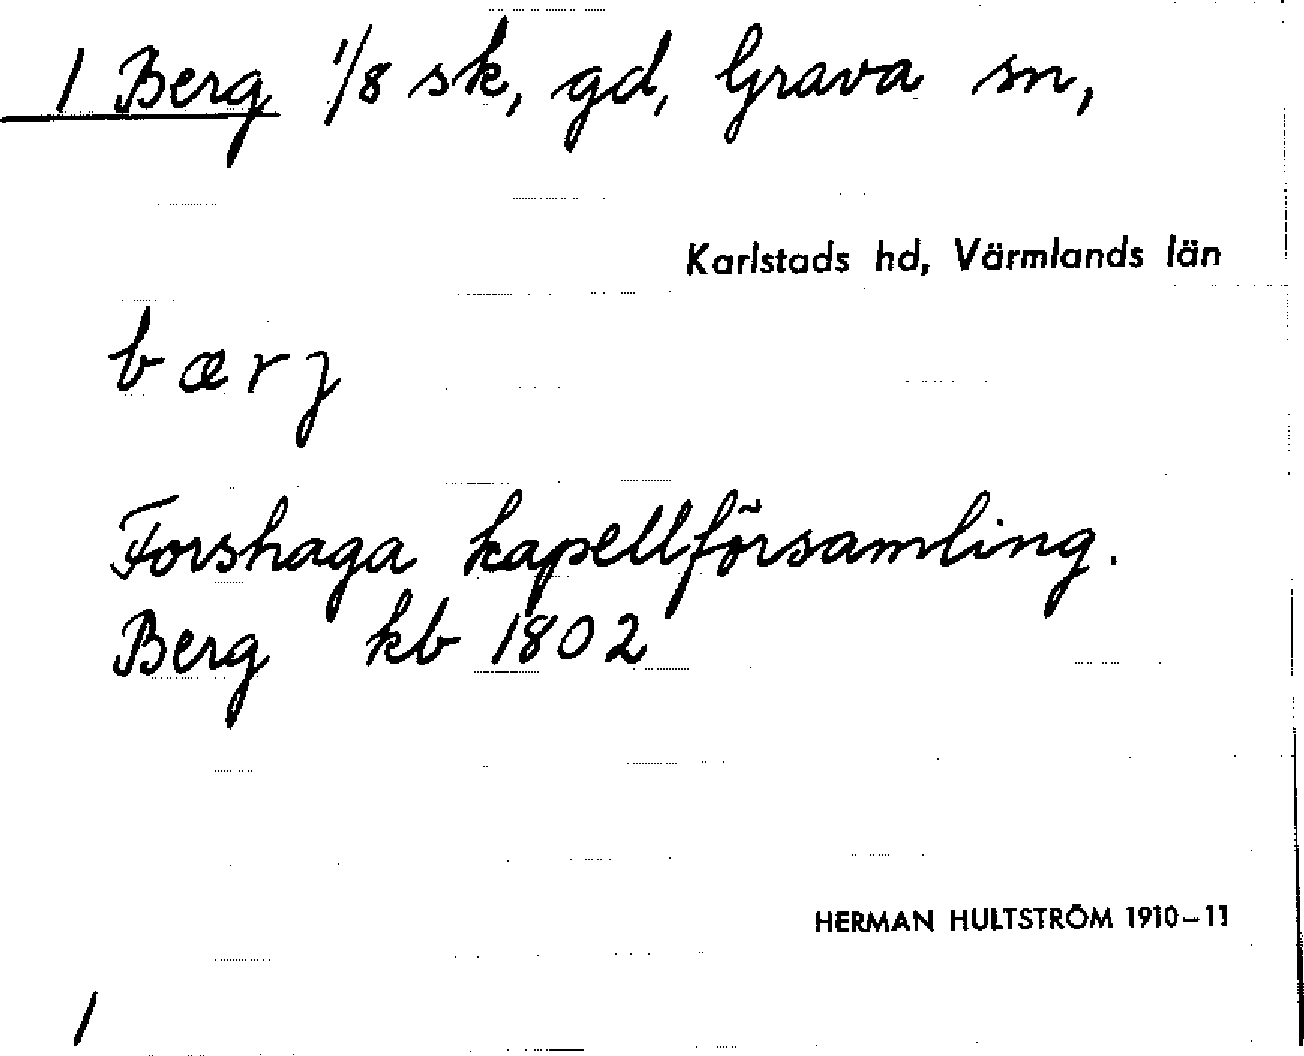 1 Berg 1/8 sk, gd, Grava sn,
Karlstads hd, Värmlands län
bærj
Forshaga kapellförsamling.
Berg kb 1802
HERMAN HULTSTRÖM 1910–11
1